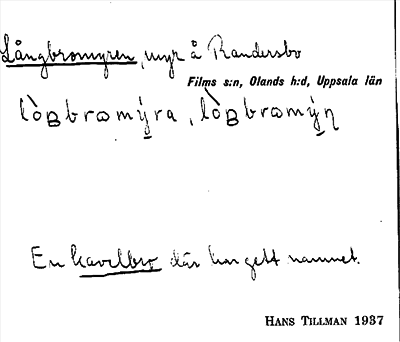 Långbromyren, myr å Randersbo
Films s:n, Olands h:d, Uppsala län
En kavelbro där har gett namnet.
HANS TILLMAN 1937